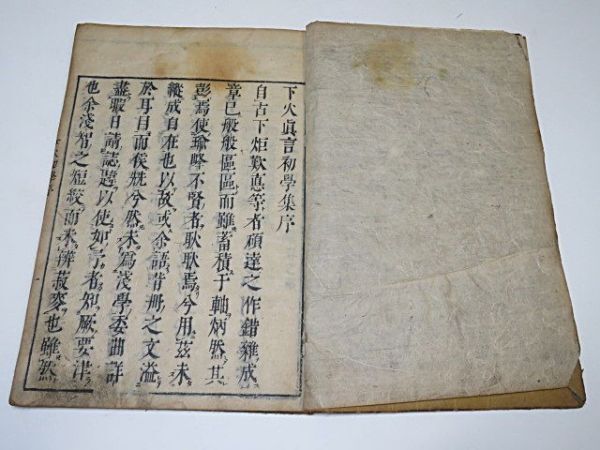 下火眞言初學集序
自古下炬歎悳等者碩達之作錯雜成
章已般般區區而雖蓄積于軸炳然其
彭焉使瑜峰不賢者耿耿焉今用茲未
縱成自在也以故或余語昔册之文溢
於耳目而俟兟兮然未寫淺學委曲詳
盡暇日請誌題以使如予者知厥要津
也余淺智之短綆而未辨菽麥也雖然